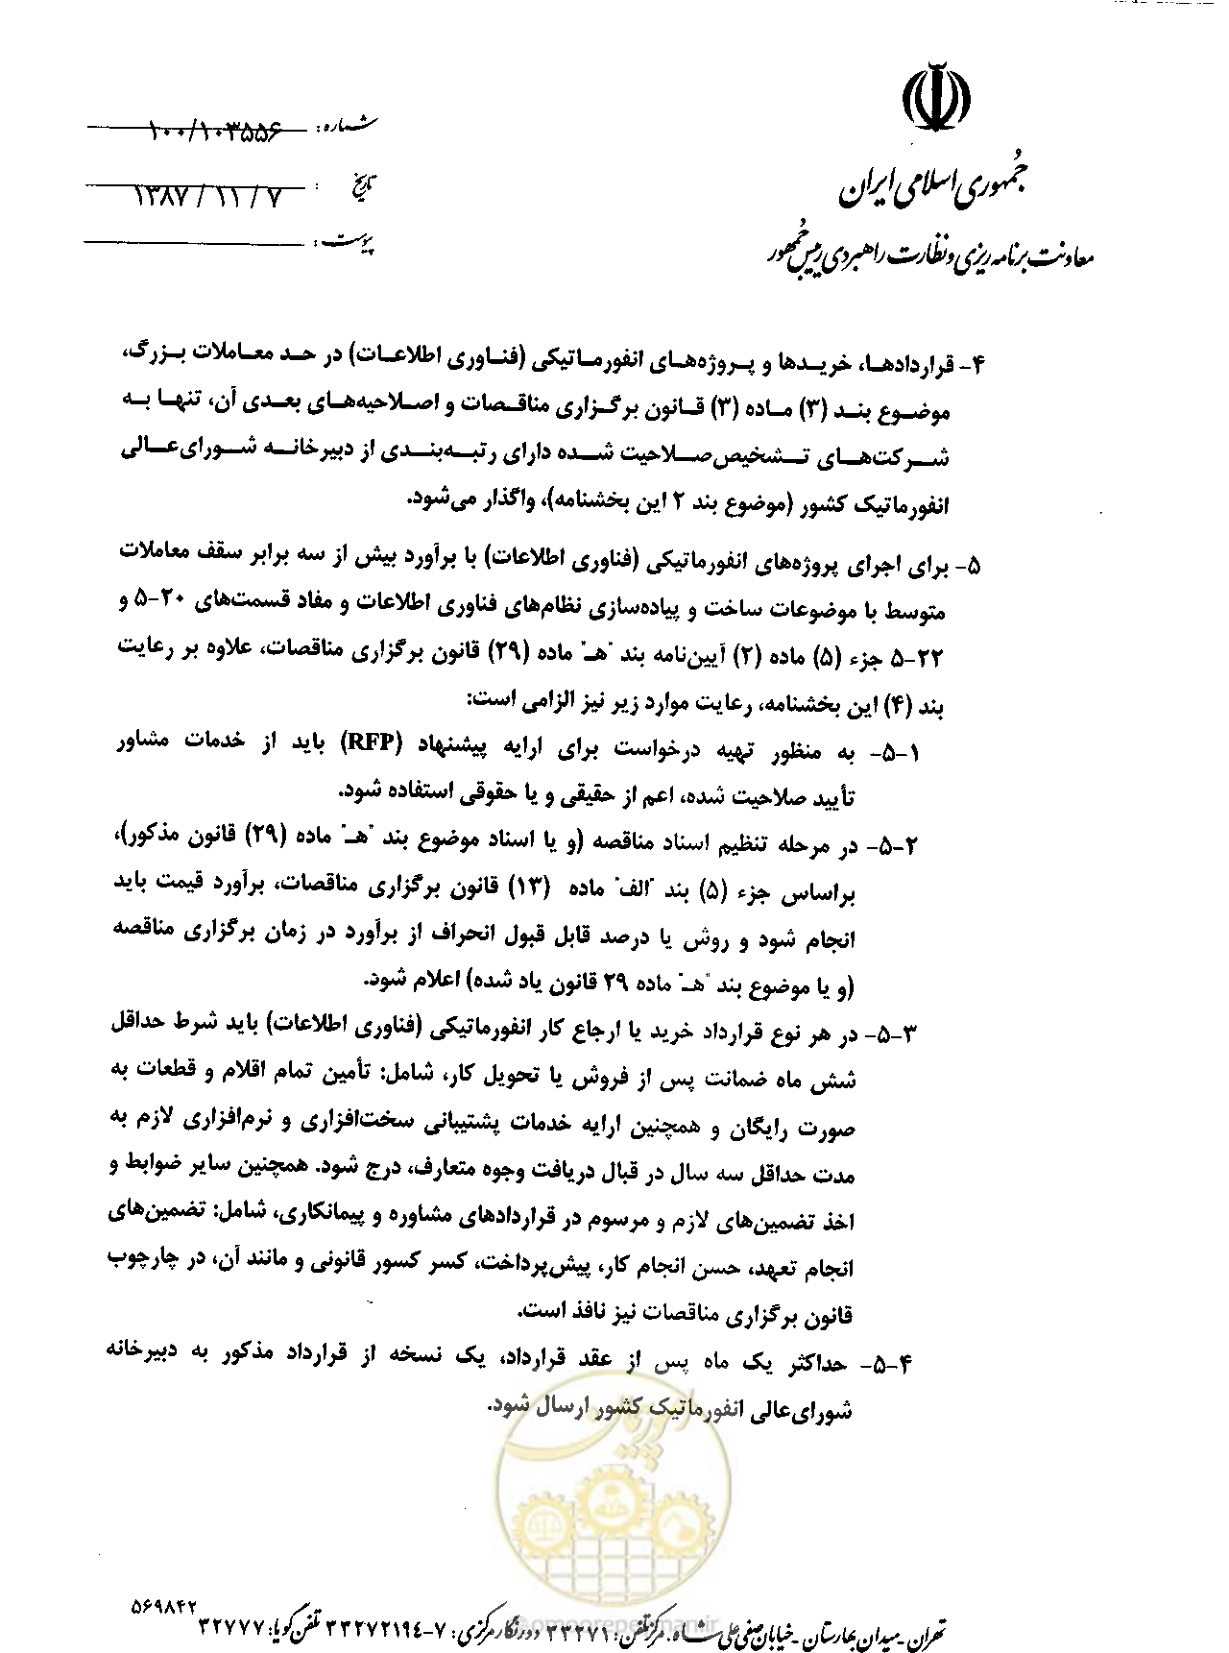 جمهوری اسلامی ایران
معاونت برنامه‌ریزی و نظارت راهبردی رییس جمهور
شماره: ۱۰۰/۱۰۳۵۵۶
تاریخ : ۱۳۸۷/۱۱/۷
پیوست:
۴- قراردادها، خریدها و پروژه‌های انفورماتیکی (فناوری اطلاعات) در حد معاملات بزرگ،
موضوع بند (۳) ماده (۳) قانون برگزاری مناقصات و اصلاحیه‌های بعدی آن، تنها به
شرکت‌های تشخیص‌صلاحیت شده دارای رتبه‌بندی از دبیرخانه شورای‌عالی
انفورماتیک کشور (موضوع بند ۲ این بخشنامه)، واگذار می‌شود.
۵- برای اجرای پروژه‌های انفورماتیکی (فناوری اطلاعات) با برآورد بیش از سه برابر سقف معاملات
متوسط با موضوعات ساخت و پیاده‌سازی نظام‌های فناوری اطلاعات و مفاد قسمت‌های ۲۰-۵ و
۲۲-۵ جزء (۵) ماده (۲) آیین‌نامه بند "هـ" ماده (۲۹) قانون برگزاری مناقصات، علاوه بر رعایت
بند (۴) این بخشنامه، رعایت موارد زیر نیز الزامی است:
۱-۵- به منظور تهیه درخواست برای ارایه پیشنهاد (RFP) باید از خدمات مشاور
تأیید صلاحیت شده، اعم از حقیقی و یا حقوقی استفاده شود.
۲-۵- در مرحله تنظیم اسناد مناقصه (و یا اسناد موضوع بند "هـ" ماده (۲۹) قانون مذکور)،
براساس جزء (۵) بند "الف" ماده (۱۳) قانون برگزاری مناقصات، برآورد قیمت باید
انجام شود و روش یا درصد قابل قبول انحراف از برآورد در زمان برگزاری مناقصه
(و یا موضوع بند "هـ" ماده ۲۹ قانون یاد شده) اعلام شود.
۳-۵- در هر نوع قرارداد خرید یا ارجاع کار انفورماتیکی (فناوری اطلاعات) باید شرط حداقل
شش ماه ضمانت پس از فروش یا تحویل کار، شامل: تأمین تمام اقلام و قطعات به
صورت رایگان و همچنین ارایه خدمات پشتیبانی سخت‌افزاری و نرم‌افزاری لازم به
مدت حداقل سه سال در قبال دریافت وجوه متعارف، درج شود. همچنین سایر ضوابط و
اخذ تضمین‌های لازم و مرسوم در قراردادهای مشاوره و پیمانکاری، شامل: تضمین‌های
انجام تعهد، حسن انجام کار، پیش‌پرداخت، کسر کسور قانونی و مانند آن، در چارچوب
قانون برگزاری مناقصات نیز نافذ است.
۴-۵- حداکثر یک ماه پس از عقد قرارداد، یک نسخه از قرارداد مذکور به دبیرخانه
شورای‌عالی انفورماتیک کشور ارسال شود.
امور پیمان
@omoorepeyman.ir
تهران - میدان بهارستان - خیابان صفی علی شاه. مرکز تلفن: ۳۳۲۷۱ دورنگار مرکزی: ۷-۳۳۲۷۲۱۹۴ تلفن گویا: ۳۲۷۷۷
۵۶۹۸۴۲